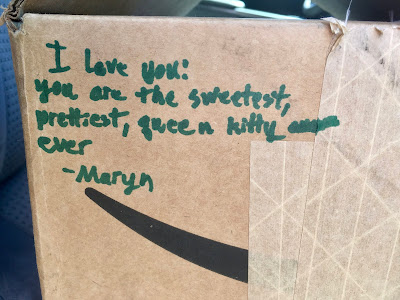 I love you:
you are the sweetest,
prettiest, queen kitty
ever
-Maryn